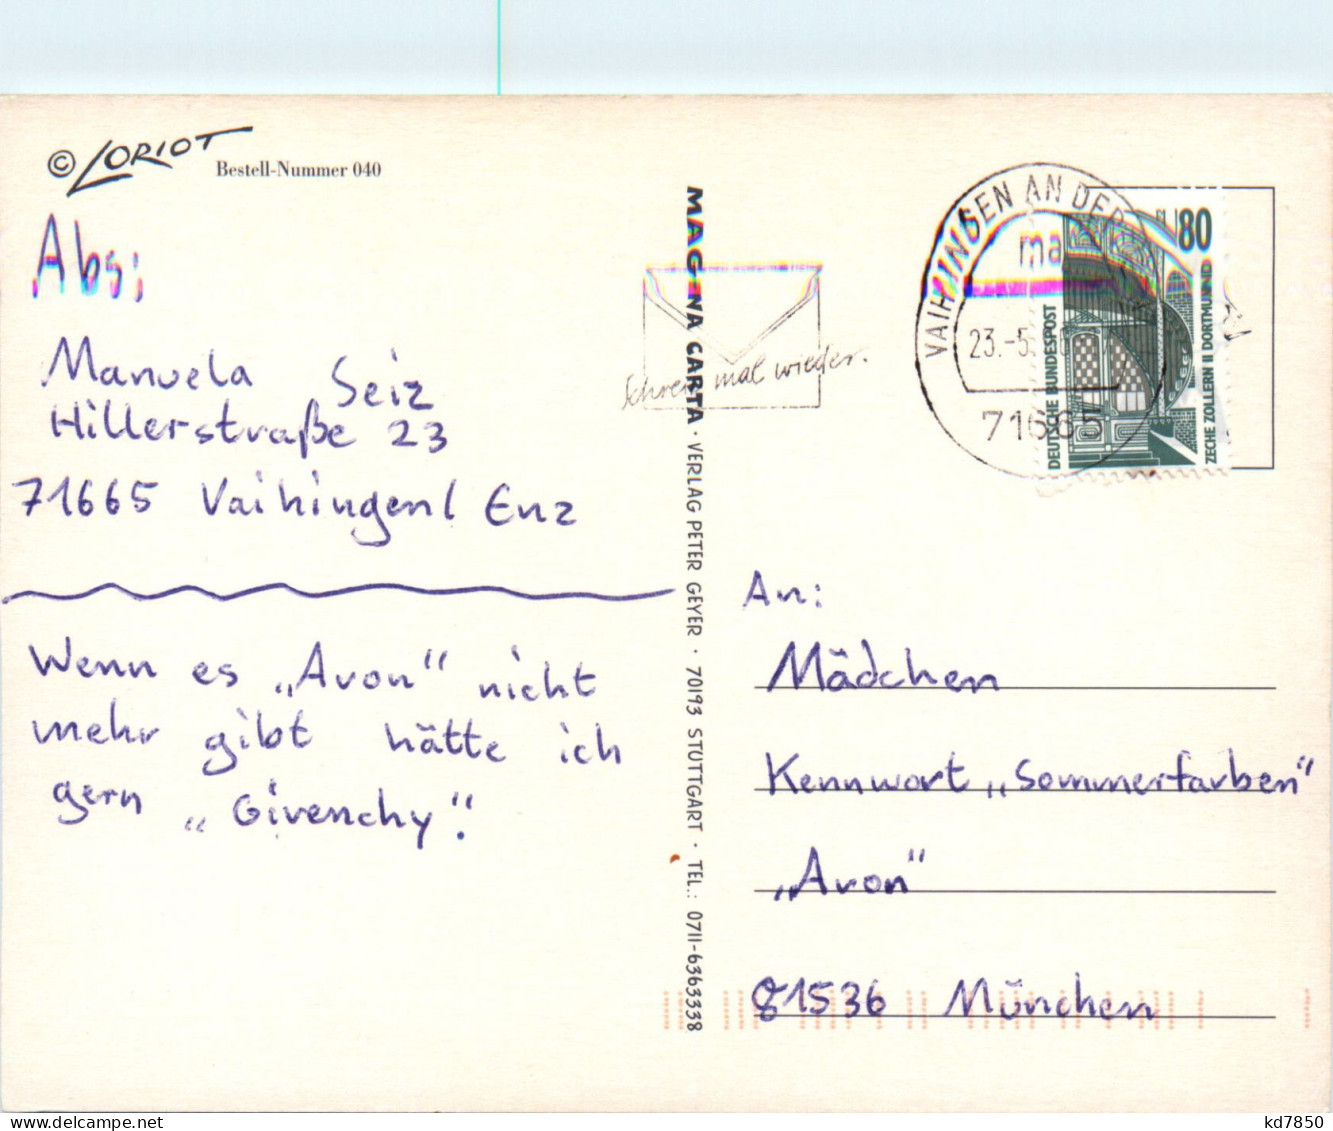 © LORIOT
Bestell-Nummer 040
Abs:
Manuela Seiz
Hillerstraße 23
71665 Vaihingen/ Enz
Wenn es „Avon“ nicht
mehr gibt hätte ich
gern „Givenchy“.
MAGNA CARTA · VERLAG PETER GEYER · 70193 STUTTGART · TEL.: 0711-6363338
Schreib mal wieder.
VAIHINGEN AN DER
ma
23.-5.
71665
80
DEUTSCHE BUNDESPOST
ZECHE ZOLLERN II DORTMUND
An:
Mädchen
Kennwort „Sommerfarben“
„Avon“
81536 München
kd7850